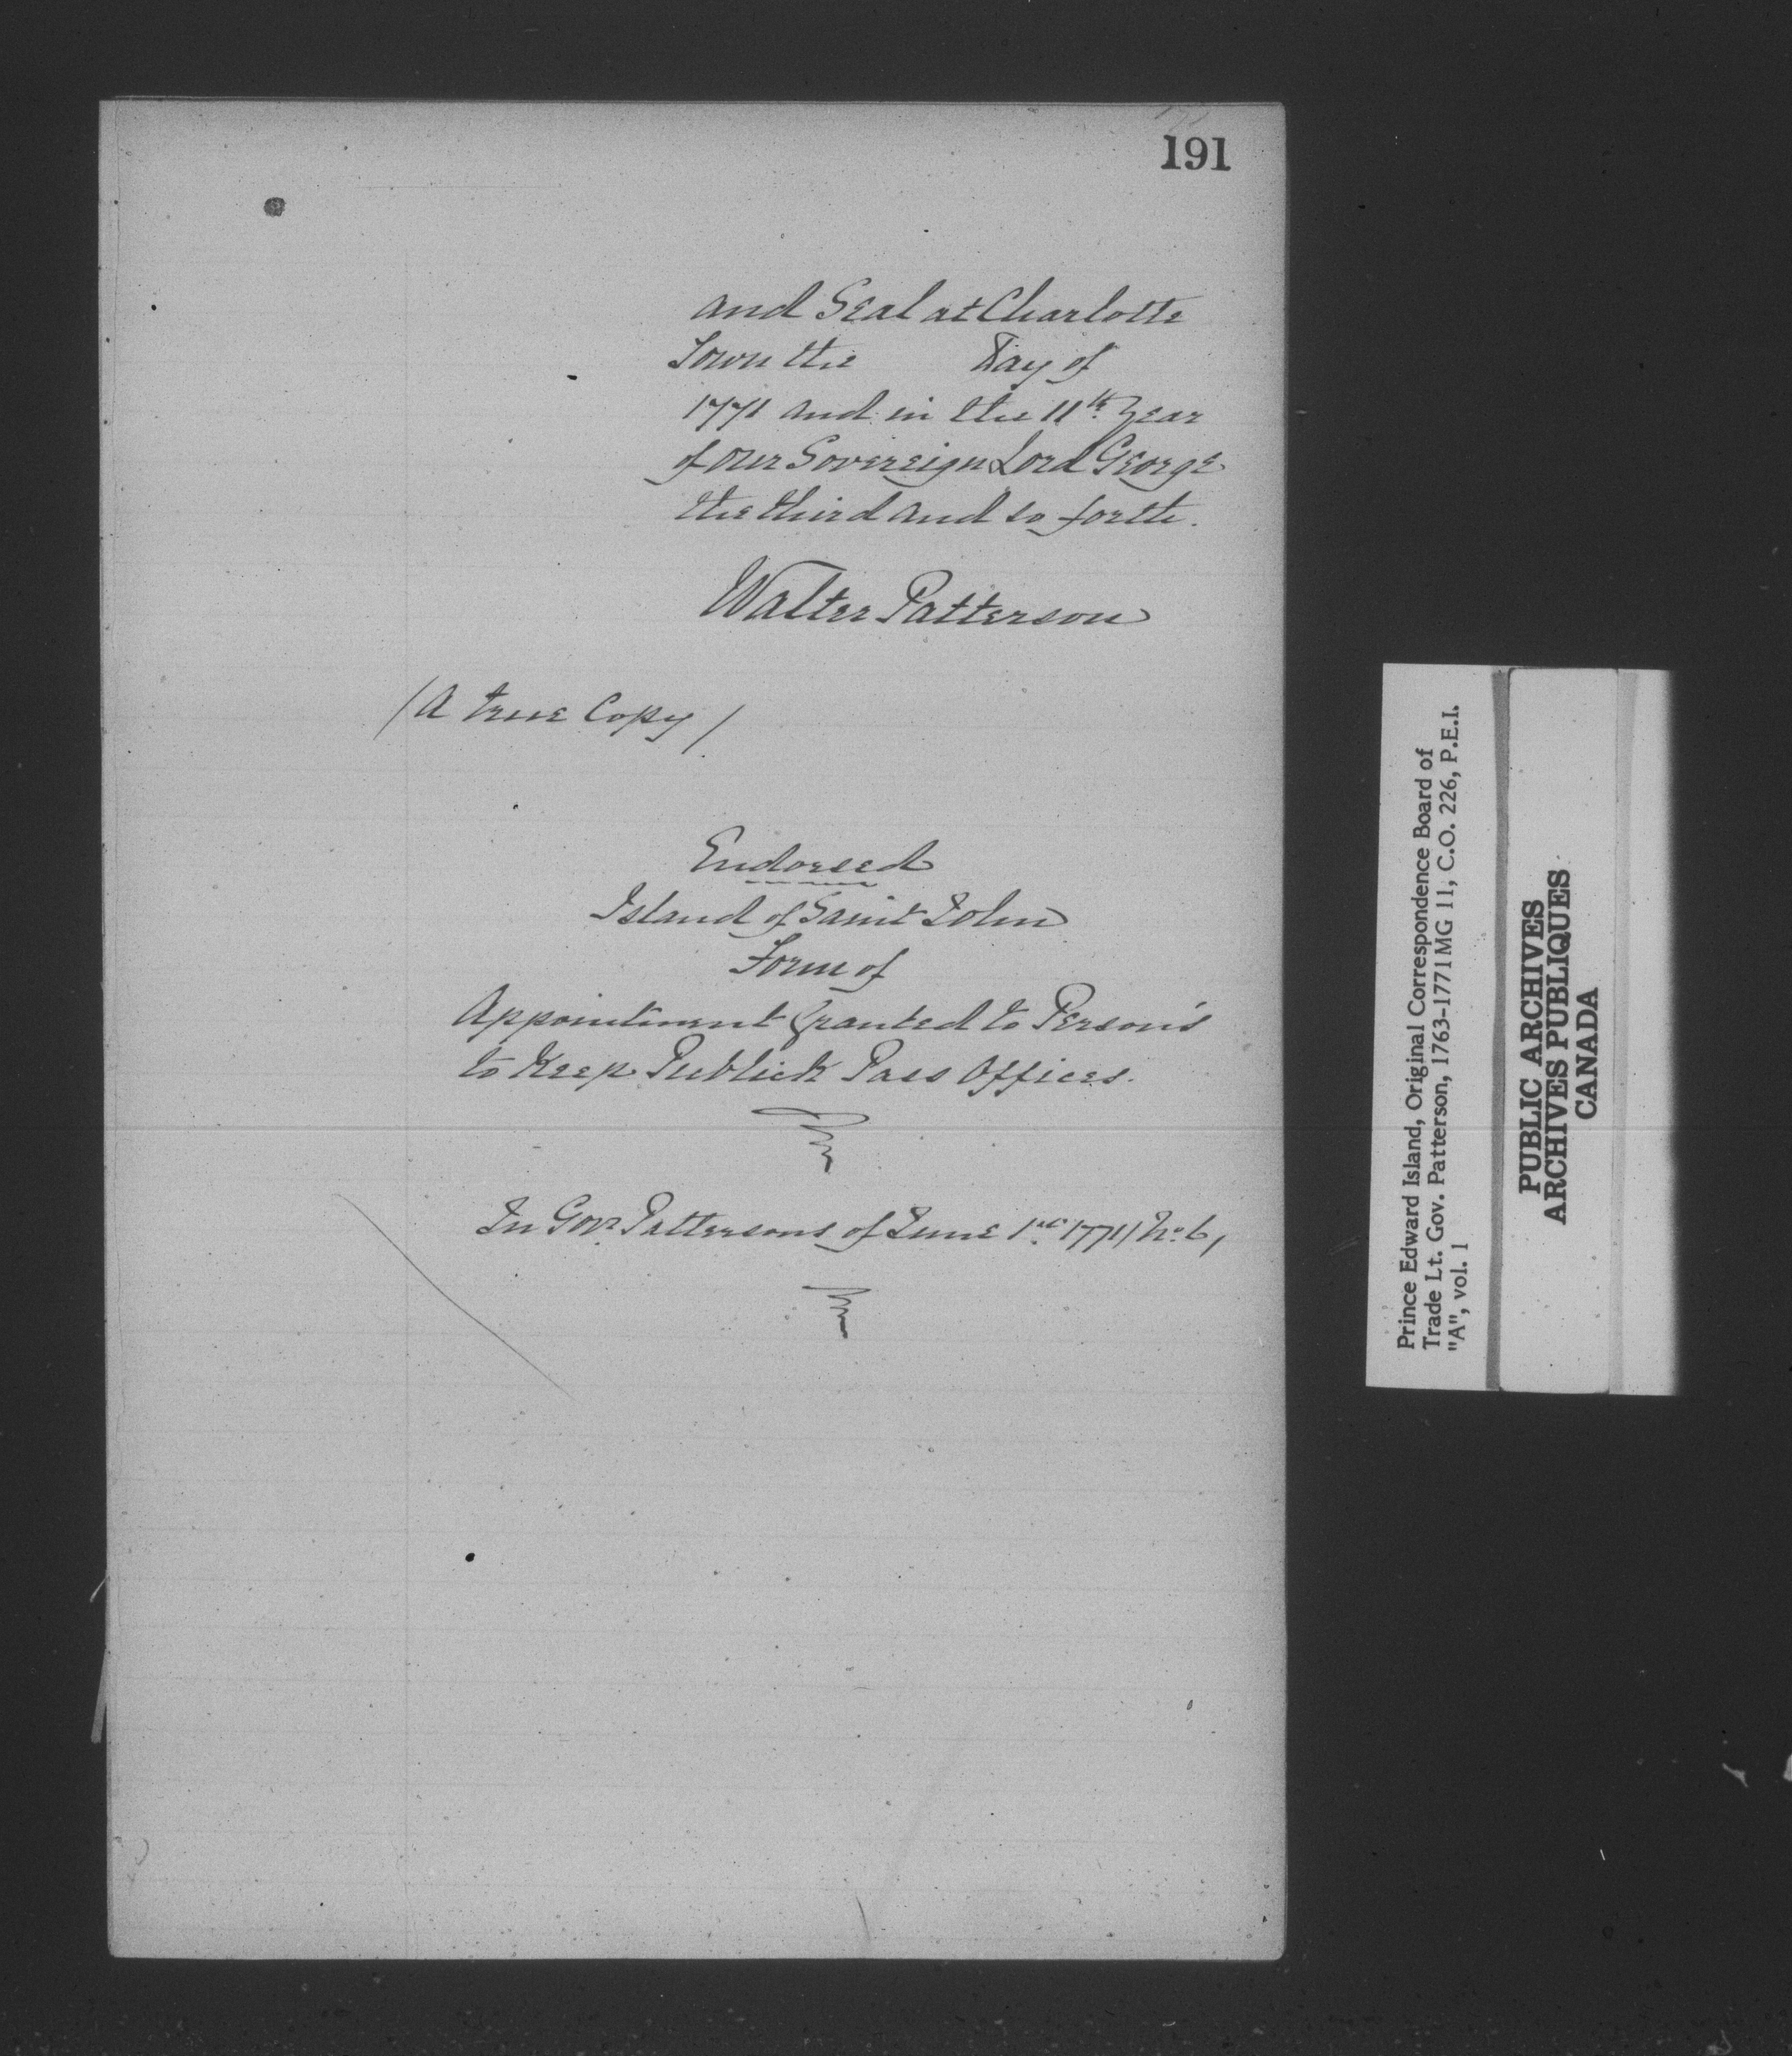 191
and Seal at Charlotte
Town the Day of
1771 and in the 11th Year
of our Sovereign Lord George
the third and so forth.
Walter Patterson
/A true Copy/
Endorsed
Island of Saint John
Form of
Appointment Granted to Person's
to Keep Publick Pass Offices.
In Govr. Pattersons of June 1st 1771/No. 6/
Prince Edward Island, Original Correspondence Board of
Trade Lt. Gov. Patterson, 1763-1771 MG 11, C.O. 226, P.E.I.
"A", vol. 1
PUBLIC ARCHIVES
ARCHIVES PUBLIQUES
CANADA